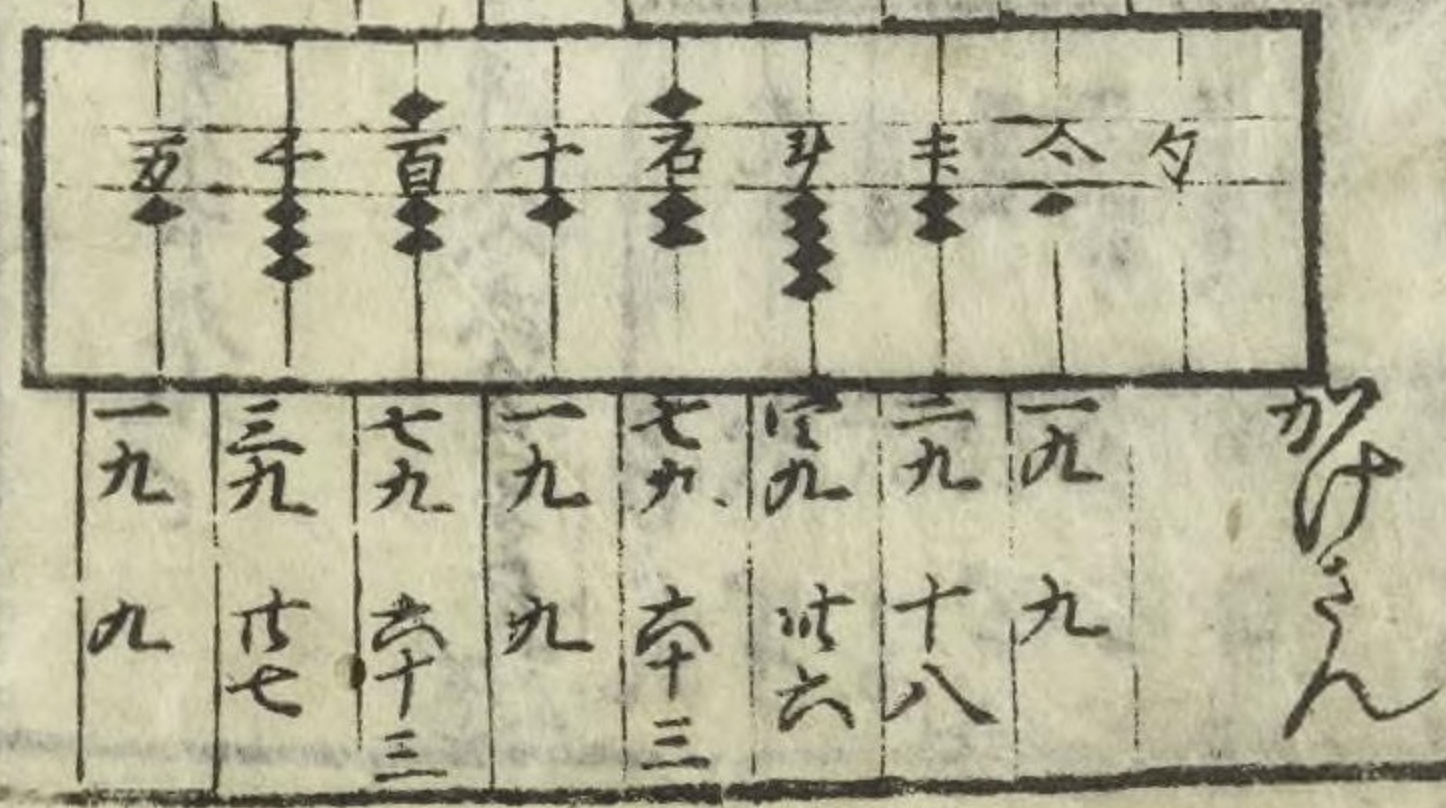 万 千 百 十 石 斗 夫 合 勺
かけさん
一九 九
二九 十八
四九 卅六
七九 六十三
一九 九
七九 六十三
三九 廿七
一九 九